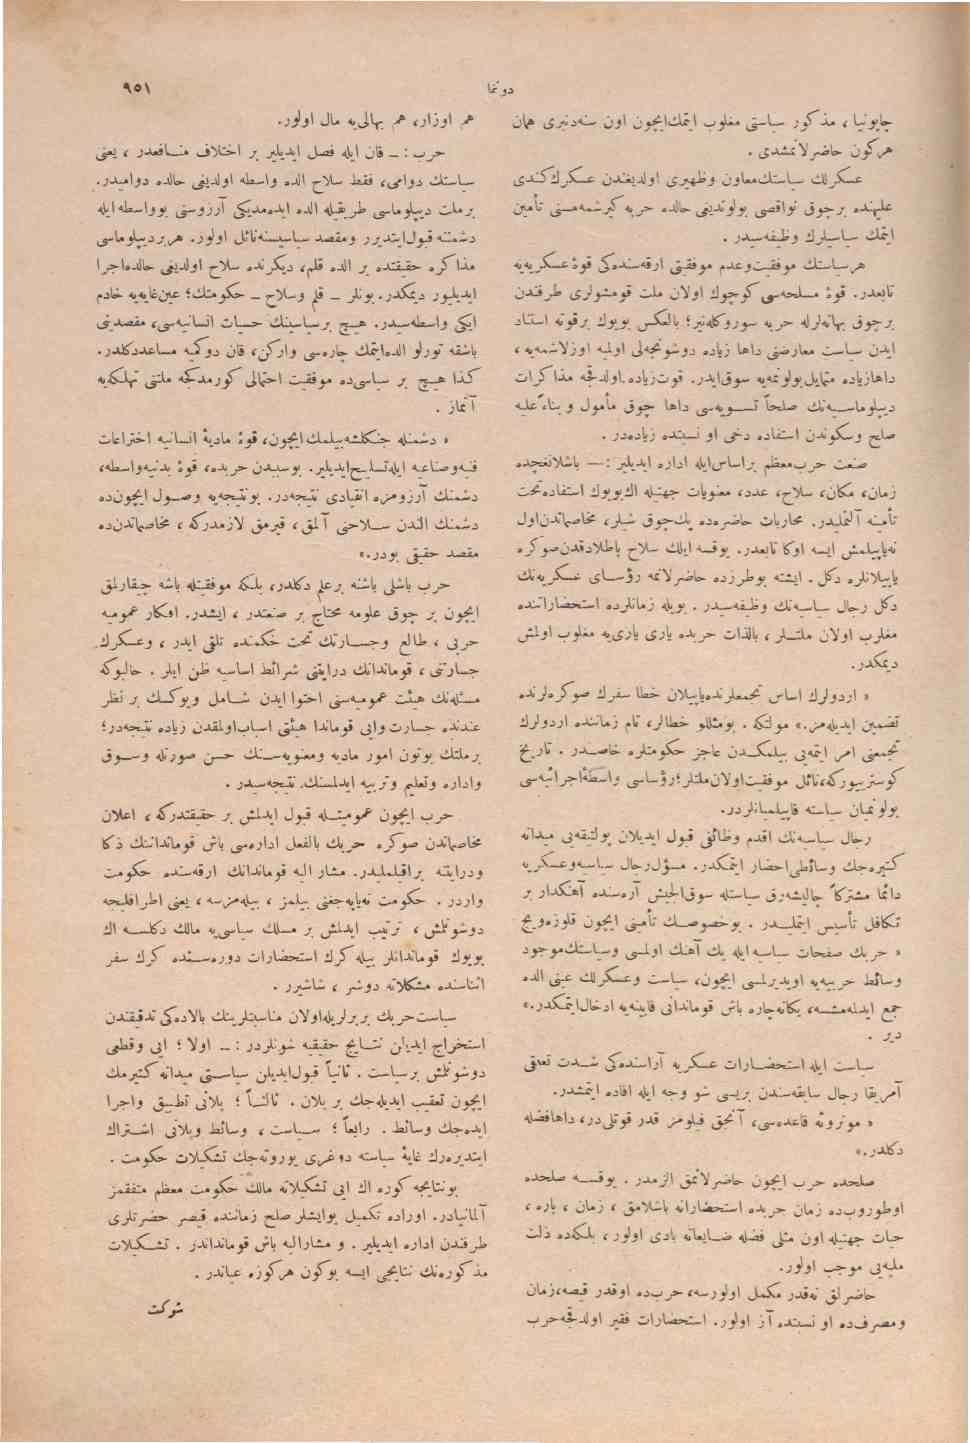 دوننما
٩٥١
چاپونیا ، مذكور سیاستی مغلوب ایتمك‌ایچون اون سنه‌دنبری همان
هركون حاضرلانمشدی .
عسكرلك سیاستك‌معاون وظهیری اولدیغندن عسكرك‌كندی
علیهنده برچوق نواقصی بولوندیغی حالده حربه كیرشمه‌مسنی تأمین
ایتمك سیاسیلرك وظیفه‌سیدر .
هرسیاستك موفقیت‌وعدم موفقیتی ارقه‌سنده‌كی قوهٔ عسكریه‌یه
تابعدر. قوهٔ مسلحه‌سی كوچوك اولان ملت قومشولری طرفندن
برچوق بهانه‌لرله حربه سوروكله‌نیر؛ بالعكس بویوك برقوته استناد
ایدن سیاست معارضنی داها زیاده دوشونجه‌لی اولمیه اوزلاشمه‌یه ،
داهازیاده متمایل‌بولونمه‌یه سوق‌ایدر. قوت‌زیاده‌اولدقجه مذاكرات
دیپلوماسیه‌نك صلحاً تسویه‌سی داها چوق مأمول و بناءً علیه
صلح وسكوندن استفاده دخی او نسبتده زیاده‌در .
صنعت حرب‌معظم براساس‌ایله اداره ایدیلیر :— باشلانغجده
زمان، مكان، سلاح، عدد، معنویات جهتیله اك‌بویوك استفاده‌تحت
تأمینه آلنملیدر. محاربات حاضره‌ده پك‌چوق شیلر، مخاصماتدن‌اول
نه‌یاپیلمش ایسه اوكا تابعدر. یوقسه ایلك سلاح پاطلادقدن‌صوكره
یاپیلانلره دكل. ایشته بوطرزده حاضرلانمه رؤسای عسكریه‌نك
دكل رجال سیاسیه‌نك وظیفه‌سیدر. بویله زمانلرده استحضاراتنده
مغلوب اولان ملتلر ، بالذات حربده یاری یاری‌یه مغلوب اولمش
دیمكدر.
« اردولرك اساس تجمعلرنده‌یاپیلان خطا سفرك صوكره‌لرنده
تضمین ایدیله‌مز.» مولتكه . بومثللو خطالر، تام زماننده اردولرك
تجمعنی امر ایتمه‌یی بیلمكدن عاجز حكومتلره خاصدر . تاریخ
كوستریوركه،نائل موفقیت‌اولان‌ملتلر؛رؤساسی واسطهٔ‌اجرائیه‌سی
بولونمیان سیاسته قاپیلمیانلردر.
رجال سیاسیه‌نك اقدم وظائفی قبول ایدیلان پولتیقه‌یی میدانه
كتیره‌جك وسائطی‌احضار ایتمكدر. مسؤل‌رجال سیاسیه‌وعسكریه
دائما مشتركاً چالیشه‌رق سیاستله سوق‌الجیش آره‌سنده آهنكدار بر
تكافل تأسیس ایتملیدر . بوخصوصك تأمینی ایچون قلوزه‌ویچ
« حربك صفحات سیاسیه ایله یك آهنك اولمسی وسیاستك‌موجود
وسائط حربیه‌یه اویدیرلمسی ایچون، سیاست وعسكرلك عینی الده
جمع ایدلمه‌مشسه، یكانه‌چاره باش قوماندانی قابینه‌یه ادخال‌ایتمكدر.»
دیر .
سیاست ایله استحضارات عسكریه آراسنده‌كی شدت تعلقی
آمریقا رجال سابقه‌سندن بریسی شو وجه ایله افاده ایتمشدر.
« مونروئه قاعده‌سی، آنجق فیلومز قدر قوتلی‌در، داهافضله
دكلدر.»
صلحده حرب ایچون حاضرلانمق الزمدر . یوقسه صلحده
اوطوروب‌ده زمان حربده استحضاراته باشلامق ، زمان ، پاره ،
حیات جهتیله اون مثلی فضله ضایعاته بادی اولور ، بلكه‌ده ذلت
ملیه‌یی موجب اولور.
حاضرلق نه‌قدر مكمل اولورسه، حرب‌ده اوقدر قیصه،زمان
ومصرف‌ده او نسبتده آز اولور. استحضارات فقیر اولدقجه‌حرب
هم اوزار، هم بهالی‌یه مال اولور.
حرب : ــ قان ایله فصل ایدیلیر بر اختلاف منافعدر ، یعنی
سیاستك دوامی، فقط سلاح الده واسطه اولدیغی حالده دوامیدر.
برملت دیپلوماسی طریقیله الده ایده‌مدیكی آرزوسنی بوواسطه‌ایله
دشمننه قبول‌ایتدیرر ومقصد سیاسیسنه‌نائل اولور. هربردیپلوماسی
مذاكره حقیقتده بر الده قلم، دیكرنده سلاح اولدیغی حالده‌اجرا
ایدیلیور دیمكدر. بونلر ــ قلم وسلاح ــ حكومتك؛ عین‌غایه‌یه خادم
ایكی واسطه‌سیدر. هیچ برسیاسینك حسیات انسانیه‌سی، مقصدینی
باشقه تورلو الده‌ایتمك چاره‌سی واركن، قان دوكمیه مساعددكلدر.
كذا هیچ بر سیاسی‌ده موفقیت احتمالی كورمدكجه ملتنی تهلكه‌یه
آتماز .
« دشمنله جنكلشه‌بیلمك‌ایچون، قوهٔ مادیهٔ انسانیه اختراعات
فنیه‌وصناعیه ایله‌تسلیح‌ایدیلیر. بوسبدن حربده، قوهٔ بدنیه‌واسطه،
دشمنك آرزومزه انقیادی نتیجه‌در. بونتیجه‌یه وصول ایچون‌ده
دشمنك الندن سلاحنی آلمق، قیرمق لازمدركه ، مخاصماتدن‌ده
مقصد حقیقی بودر.»
حرب باشلی باشنه برعلم دكلدر، بلكه موفقیتله باشه چیقارلمق
ایچون بر چوق علومه محتاج بر صنعتدر ، ایشدر. افكار عمومیه
حربی ، طالع وجسارتك تحت حكمنده تلقی ایدر ، وعسكرك
جسارتنی ، قوماندانك درایتنی شرائط اساسیه ظن ایلر . حالبوكه
مسئله‌نك هیئت عمومیه‌سنی احتوا ایدن شامل ویوكسك بر نظر
عندنده جسارت وایی قوماندا هیئتی اسباب‌اولمقدن زیاده نتیجه‌در؛
برملتك بوتون امور مادیه ومعنویه‌سنك حسن صورتله وسوق
واداره وتعلیم وتربیه ایدلمسنك نتیجه‌سیدر .
حرب ایچون عمومیتله قبول ایدلمش بر حقیقتدركه ، اعلان
مخاصماتدن صوكره حربك بالفعل اداره‌سی باش قوماندانینك ذكا
ودرایتنه براقیلملیدر. مشار الیه قوماندانك ارقه‌سنده حكومت
واردر . حكومت نه‌یاپه‌جغنی بیلمز ، بیله‌مزسه ، یعنی اطرافلیجه
دوشونلمش ، ترتیب ایدلمش بر مسلك سیاسی‌یه مالك دكلسه اك
بویوك قوماندانلر بیله كرك استحضارات دوره‌سنده كرك سفر
اثناسنده مشكلاته دوشر ، شاشیرر .
سیاست‌حربك بربرلریله‌اولان مناسبتلرینك بالاده‌كی تدقیقندن
استخراج ایدیلن نتایج حقیقیه شونلردر : ــ اولا ؛ ایی وقطعی
دوشونلمش برسیاست . ثانیاً قبول‌ایدیلن سیاستی میدانه كتیرمك
ایچون تعقیب ایدیله‌جك بر پلان . ثالثاً ؛ پلانی تطبیق واجرا
ایده‌جك وسائط . رابعاً ؛ سیاست ، وسائط وپلانی اشتراك
ایتدیره‌رك غایهٔ سیاسته دوغری یوروته‌جك تشكیلات حكومت .
بونتایجه كوره اك ایی تشكیلاته مالك حكومت معظم متفقمز
آلمانیادر. اوراده تكمیل بوایشلر صلح زماننده قیصر حضرتلری
طرفندن اداره ایدیلیر . و مشارالیه باش قومانداندر . تشكیلات
مذكوره‌نك نتایجی ایسه بوكون هركوزه عیاندر .
شوكت